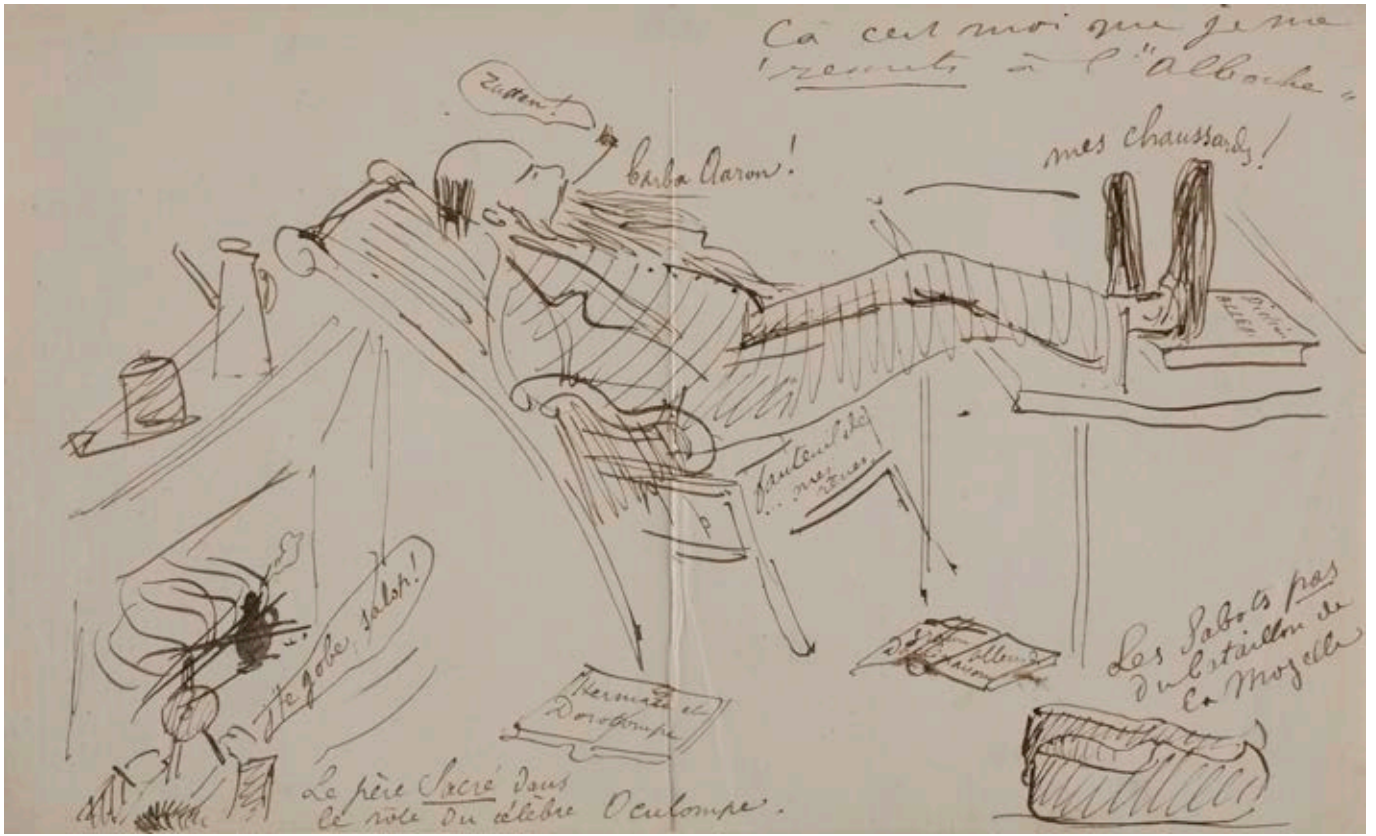 Cà cest moi que je me
remets à l'"Alboche"
Zutten!
barba Aaron!
mes chaussards!
Dictio
ALLEM
fauteuil de
... mes
rêves
Je gobe, salop!
Hermann et
Dorotompe
Dictionnaire allemd
Les Sabots pas
du bataillon de
la Mozelle
Le père Sacré dans
le rôle du célèbre Oculompe.